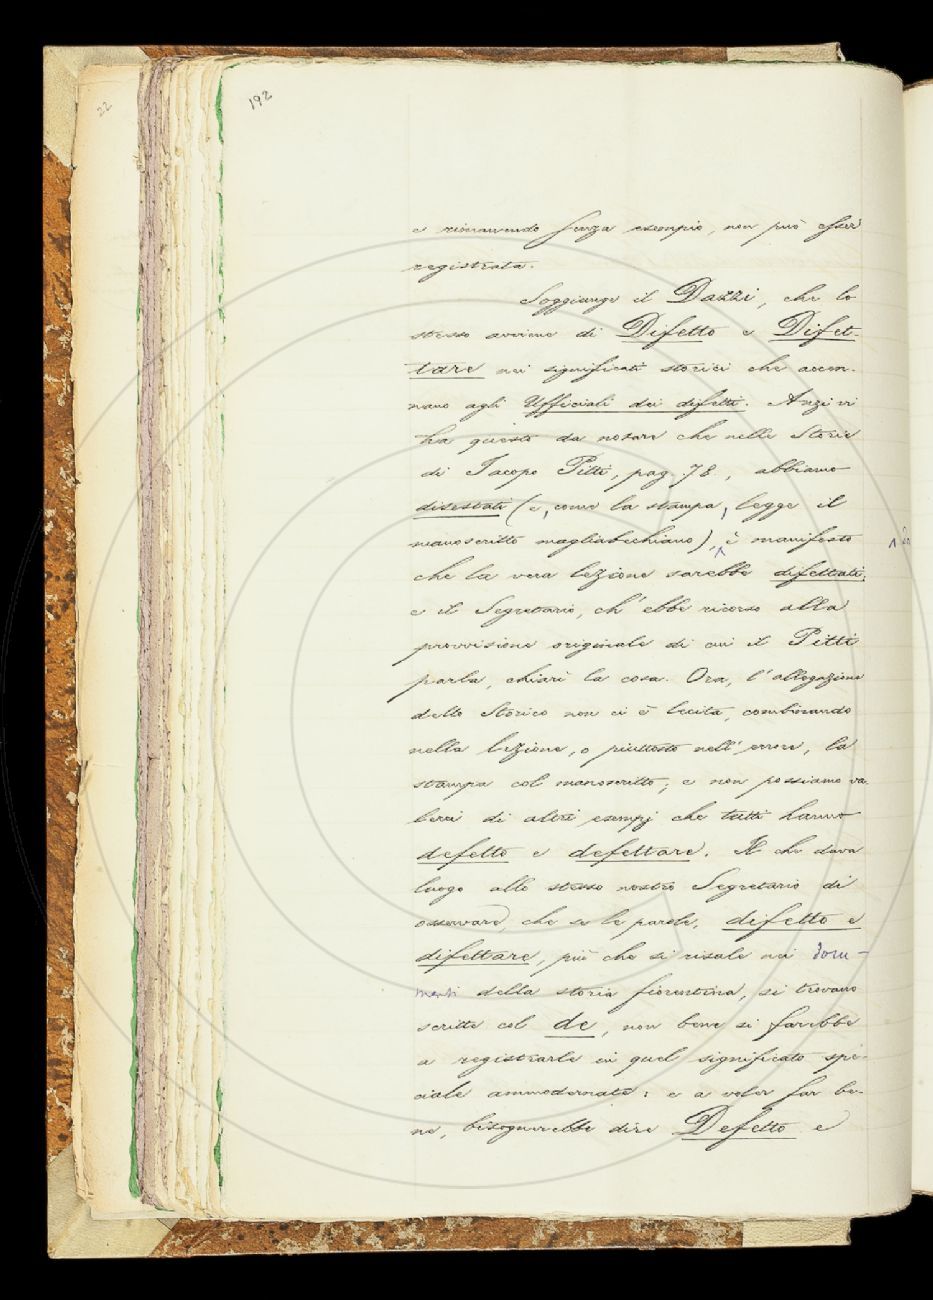 22
192
e rimanendo senza esempio, non può esser
registrata.
Soggiunge il Dazzi, che lo
stesso avviene di Difetto e Difet-
tare nei significati storici che accen-
nano agli Ufficiali dei difetti. Anzi vi
ha questo da notare che nelle Storie
di Iacopo Pitti, pag. 78., abbiamo
disestati (e, come la stampa, legge il
manoscritto magliabechiano), è manifesto
che la vera lezione sarebbe difettati;
e il Segretario, ch'ebbe ricorso alla
provvisione originale di cui il Pitti
parla, chiarì la cosa. Ora, l'allegazione
dello Storico non ci è lecita, combinando
nella lezione, o piuttosto nell'errore, la
stampa col manoscritto; e non possiamo va-
lerci di altri esempj che tutti hanno
defetto e defettare. Il che dava
luogo allo stesso nostro Segretario di
osservare, che se le parole, difetto e
difettare, più che si risale nei docu-
menti della storia fiorentina, si trovano
scritte col de, non bene si farebbe
a registrarle in quel significato spe-
ciale ammodernate: e a voler far be-
ne, bisognerebbe dire Defetto e